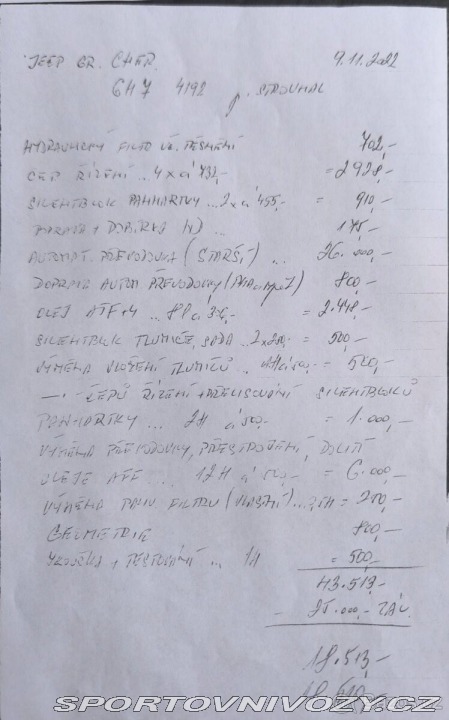 JEEP GR. CHER. 9.11.2022
6H7 4192 p. STROUHAL
HYDRAULICKÝ FILTR VČ. TĚSNĚNÍ 702,-
ČEP ŘÍZENÍ .. 4 x á 732,- = 2928,-
SILENTBLOK PANHARTKY .. 2 x á 455,- = 910,-
DOPRAVA + DOBÍRKA 175,-
AUTOMAT. PŘEVODOVKA (STARŠÍ) .. 26.000,-
DOPRAVA AUTOM. PŘEVODOVKY 800,-
OLEJ ATF+4 .. 8L á 306,- = 2.448,-
SILENTBLOK TLUMIČE, SADA .. 2 x 250,- = 500,-
VÝMĚNA ULOŽENÍ TLUMIČŮ .. 1H á 500,- = 500,-
-"- ČEPŮ ŘÍZENÍ + PŘELISOVÁNÍ SILENTBLOKŮ
PANHARTKY ... 2H á 500,- = 1.000,-
VÝMĚNA PŘEVODOVKY, PŘESTROJENÍ, DOLITÍ
OLEJE ATF ... 12H á 500,- = 6.000,-
VÝMĚNA PALIV. FILTRU (VLASTNÍ) = 250,-
GEOMETRIE 800,-
ZKOUŠKA + TESTOVÁNÍ ... 1H = 500,-
43.513,-
- 25.000,- ZÁL.
18.513,-
SPORTOVNIVOZY.CZ